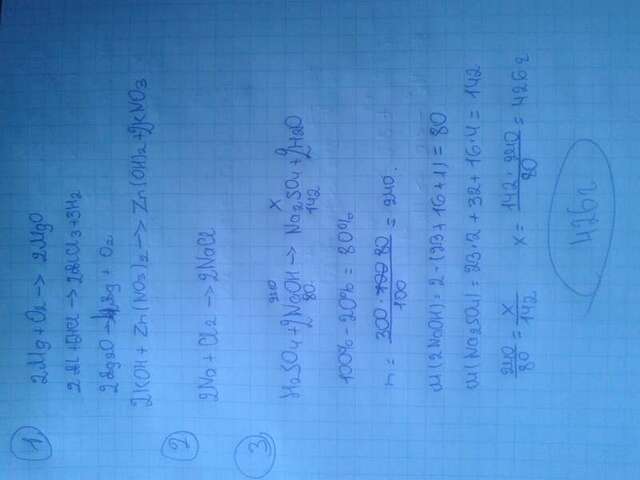 1 2Mg + O2 -> 2MgO
2Al + 6HCl -> 2AlCl3 + 3H2
2Ag2O -> 4Ag + O2
2KOH + Zn(NO3)2 -> Zn(OH)2 + 2KNO3
2 2Na + Cl2 -> 2NaCl
3 240 x
H2SO4 + 2NaOH -> Na2SO4 + 2H2O
80 142
100% - 20% = 80%
300 · 80
= 240.
100
M(2NaOH) = 2 · (23 + 16 + 1) = 80
M(Na2SO4) = 23 · 2 + 32 + 16 · 4 = 142
240/80 = x/142 x = 142 · 240/80 = 426г
426г